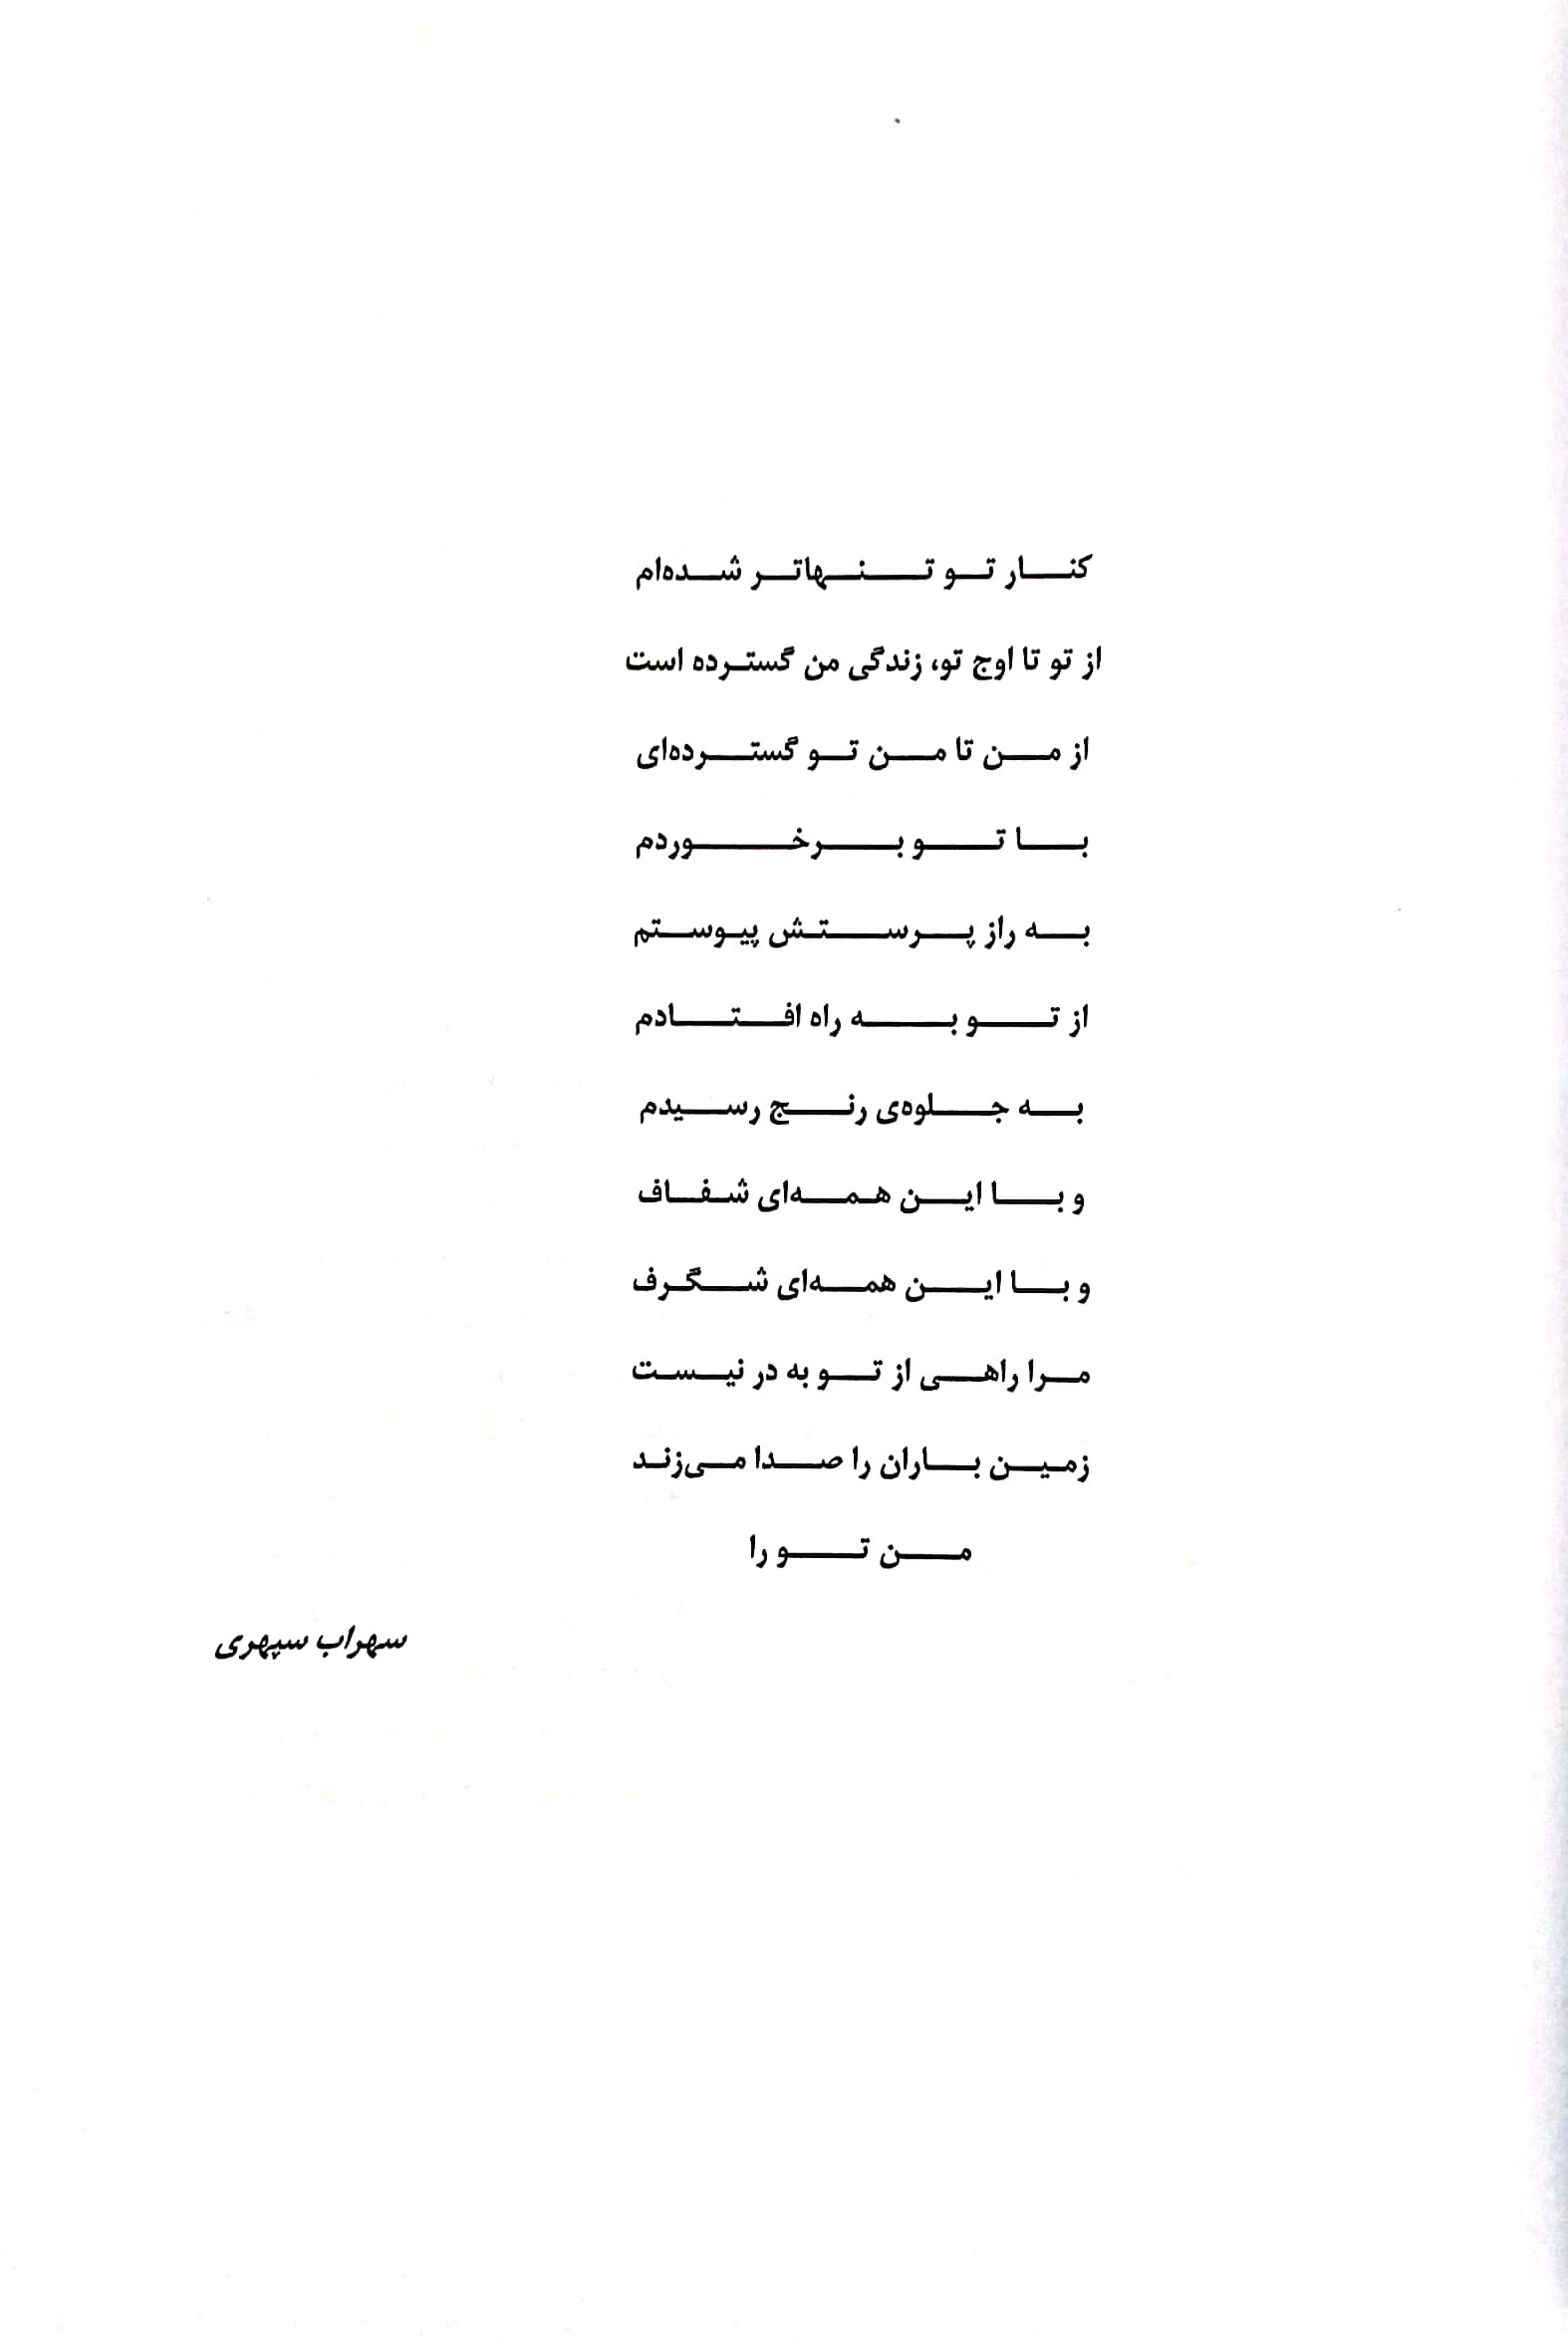 کنار تو تنهاتر شده‌ام
از تو تا اوج تو، زندگی من گسترده است
از من تا من تو گسترده‌ای
با تو برخوردم
به راز پرستش پیوستم
از تو به راه افتادم
به جلوه‌ی رنج رسیدم
و با این همه‌ای شفاف
و با این همه‌ای شگرف
مرا راهی از تو به در نیست
زمین باران را صدا می‌زند
من تو را
سهراب سپهری